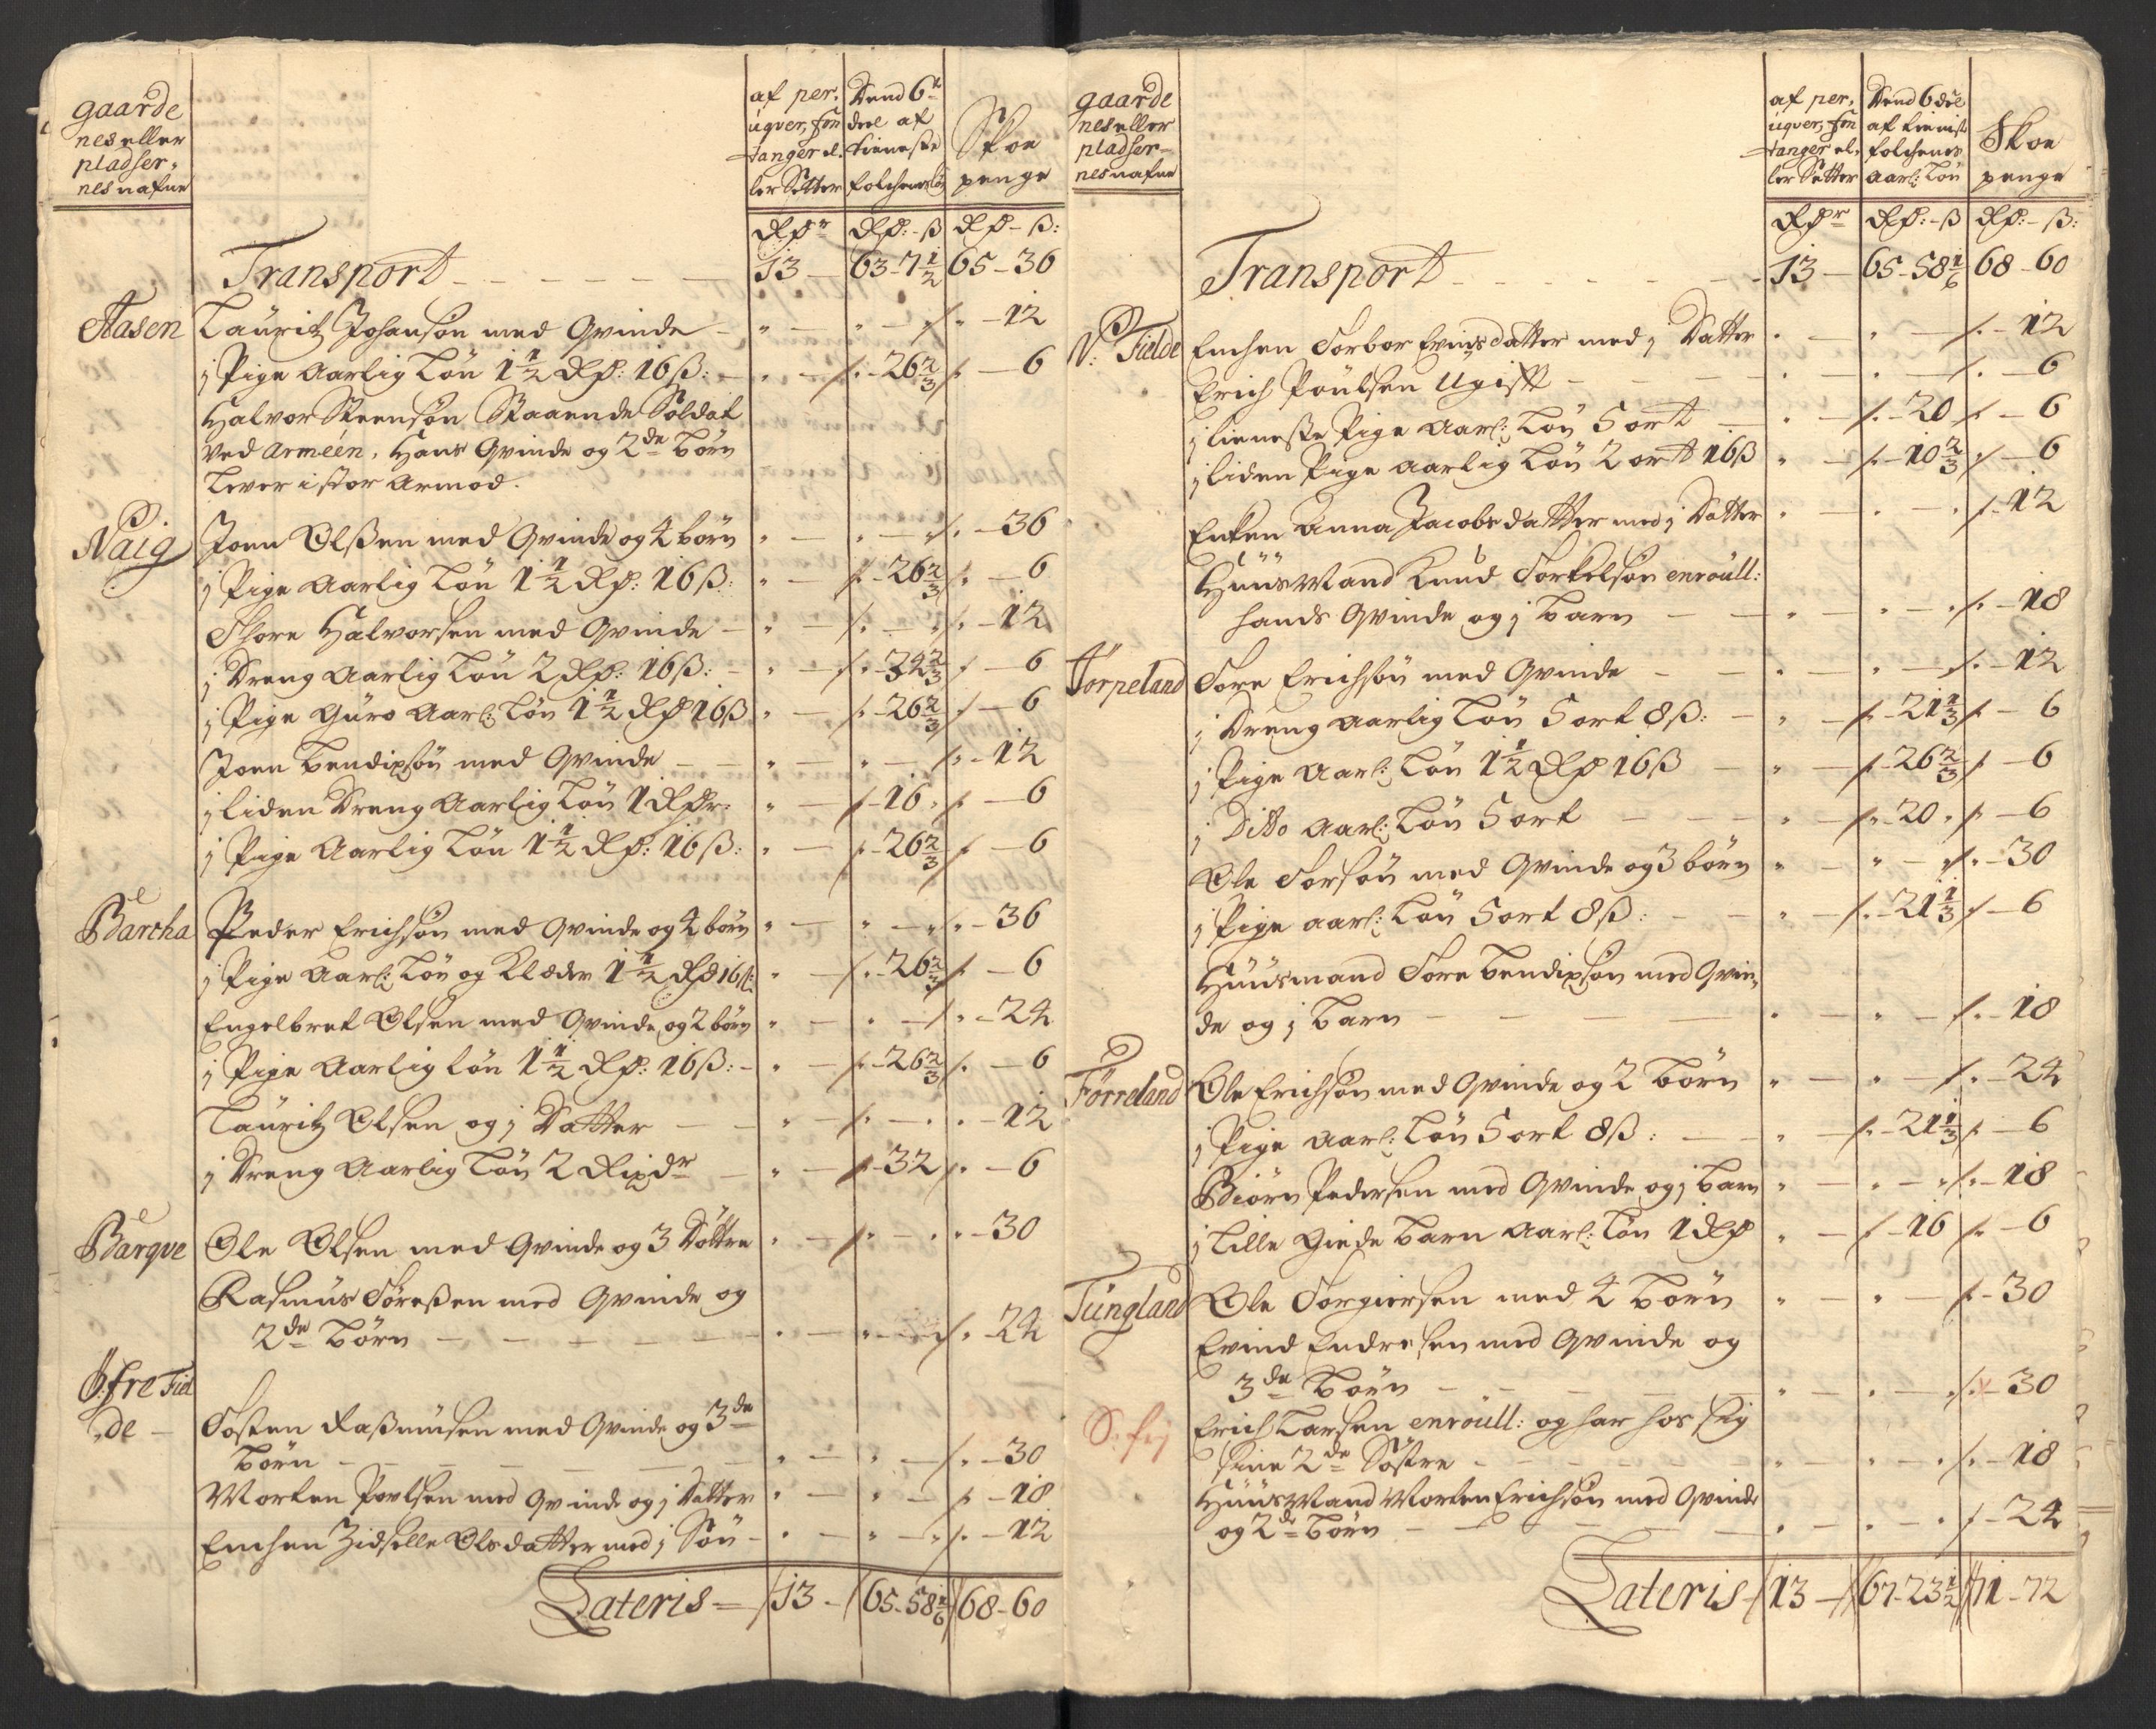 gaarde
nes eller
pladser-
nes nafne
af per.
uqver, fon
tanger el.
ler Setter
Dend 6te
deel af
tieneste
folchenes løn
Skoe
penge
Rdr Rd:-ß Rd-ß:
Transport - - - - - 13 - 63-7 1/2 65-36
Aasen Lauritz Johansøn med Qvinde - " - " - " -12
j Pige Aarlig Løn 1 1/2 Rd: 16 ß: - " - -26 2/3 -6
Halvor Steensøn Staaende Soldat
ved Arméen, Hans Qvinde og 2de Børn
Lever i stor Armod.
Naig Joen Olßen med Qvinde og 4 børn " - " - " -36
j Pige Aarlig Løn 1 1/2 Rd: 16 ß: " - -26 2/3 -6
Thore Halvorsen med Qvinde - " - - " -12
j Dreng Aarlig Løn 2 Rd: 16 ß: - " - -34 2/3 -6
j Pige Guro Aarl: Løn 1 1/2 Rd 16 ß " - -26 2/3 -6
Joen Bendixsøn med Qvinde - - " - " - -12
j liden Dreng Aarlig Løn 1 Rdr: " - -16 -6
j Pige Aarlig Løn 1 1/2 Rd: 16 ß: " - -26 2/3 -6
Bartha Peder Erichsøn med Qvinde og 4 børn " - " - " -36
j Pige Aarl: Løn og Klæder 1 1/2 Rd 16 ß: " - -26 2/3 -6
Engelbret Olsen med Qvinde og 2 børn " - " - -24
j Pige Aarlig løn 1 1/2 Rd: 16 ß: - " - -26 2/3 -6
Lauritz Olsen og j Datter - - " - - " -12
j Dreng Aarlig Løn 2 Rixdr - " - -32 -6
Barqve Ole Olsen med Qvinde og 3 Døttre " - - " -30
Rasmus Toreßen med Qvinde og
2de Børn - - - - - - " - " - -24
Øfre Fiel
de - Tosten Raßmusen med Qvinde og 3de
Børn - - - - - " - " - -30
Morten Povlsen med Qvinde og j Datter " - " - -18
Enchen Zidselle Olsdatter med j Søn - " - " - " -12
Lateris - 13 - 65-58 1/6 68-60
gaarde
nes eller
pladser-
nes nafne
af per,
uqver, fon
tanger el,
ler Setter
Dend 6 deel
af tienist
folchenes
Aarl: Løn
Skoe
penge
Rdr Rd:-ß Rd:-ß:
Transport - - - - - 13 - 65-58 1/6 68-60
N: Fielde Enchen Torbor Evindsdatter med j Datter " - " - -12
Erich Poulsen Ugift - - - " - " - -6
j tieneste Pige Aarl: Løn 5 ort - " - -20 -6
j liden Pige Aarlig Løn 2 ort 16 ß " - -10 2/3 -6
Enken Anna Jacobsdatter med j Datter " - - " -12
Huusmand Knud Torkelsøn enroull:
hands Qvinde og j Barn - - " - " - " -18
Torpeland Tore Erichsøn med Qvinde - - " - " - -12
j Dreng Aarlig Løn 5 ort 8 ß: - " - -21 1/3 -6
j Pige Aarl: Løn 1 1/2 Rd 16 ß - " - -26 2/3 -6
j Ditto Aarl: Løn 5 ort - - - " - -20 -6
Ole Torsøn med Qvinde og 3 børn " - " - " -30
j Pige Aarl: Løn 5 ort 8 ß: - - " - -21 1/3 -6
Huusmand Tore Bendixsøn med Qvin,
de og j Barn - - - - " - " - -18
Forreland Ole Erichsøn med Qvinde og 2 Børn " - " - -24
j Pige Aarl: Løn 5 ort 8 ß: - - " - -21 1/3 -6
Biørn Pedersen med Qvinde og j Barn " - " - " -18
j Lille Giede Barn Aarl: Løn 1 Rd " - -16 -6
Tungland Ole Torgiersen med 4 Børn " - " - -30
Evind Endresen med Qvinde og
3de Børn - - - - - " - " - " -30
Erich Larsen enroull: og har hos sig
sine 2de Søstre - - - - - " - " - " -18
Huusmand Morten Erichsøn med Qvinde
og 2de Børn - - - - - " - " - " -24
Lateris - 13 - 67-23 1/2 71-72